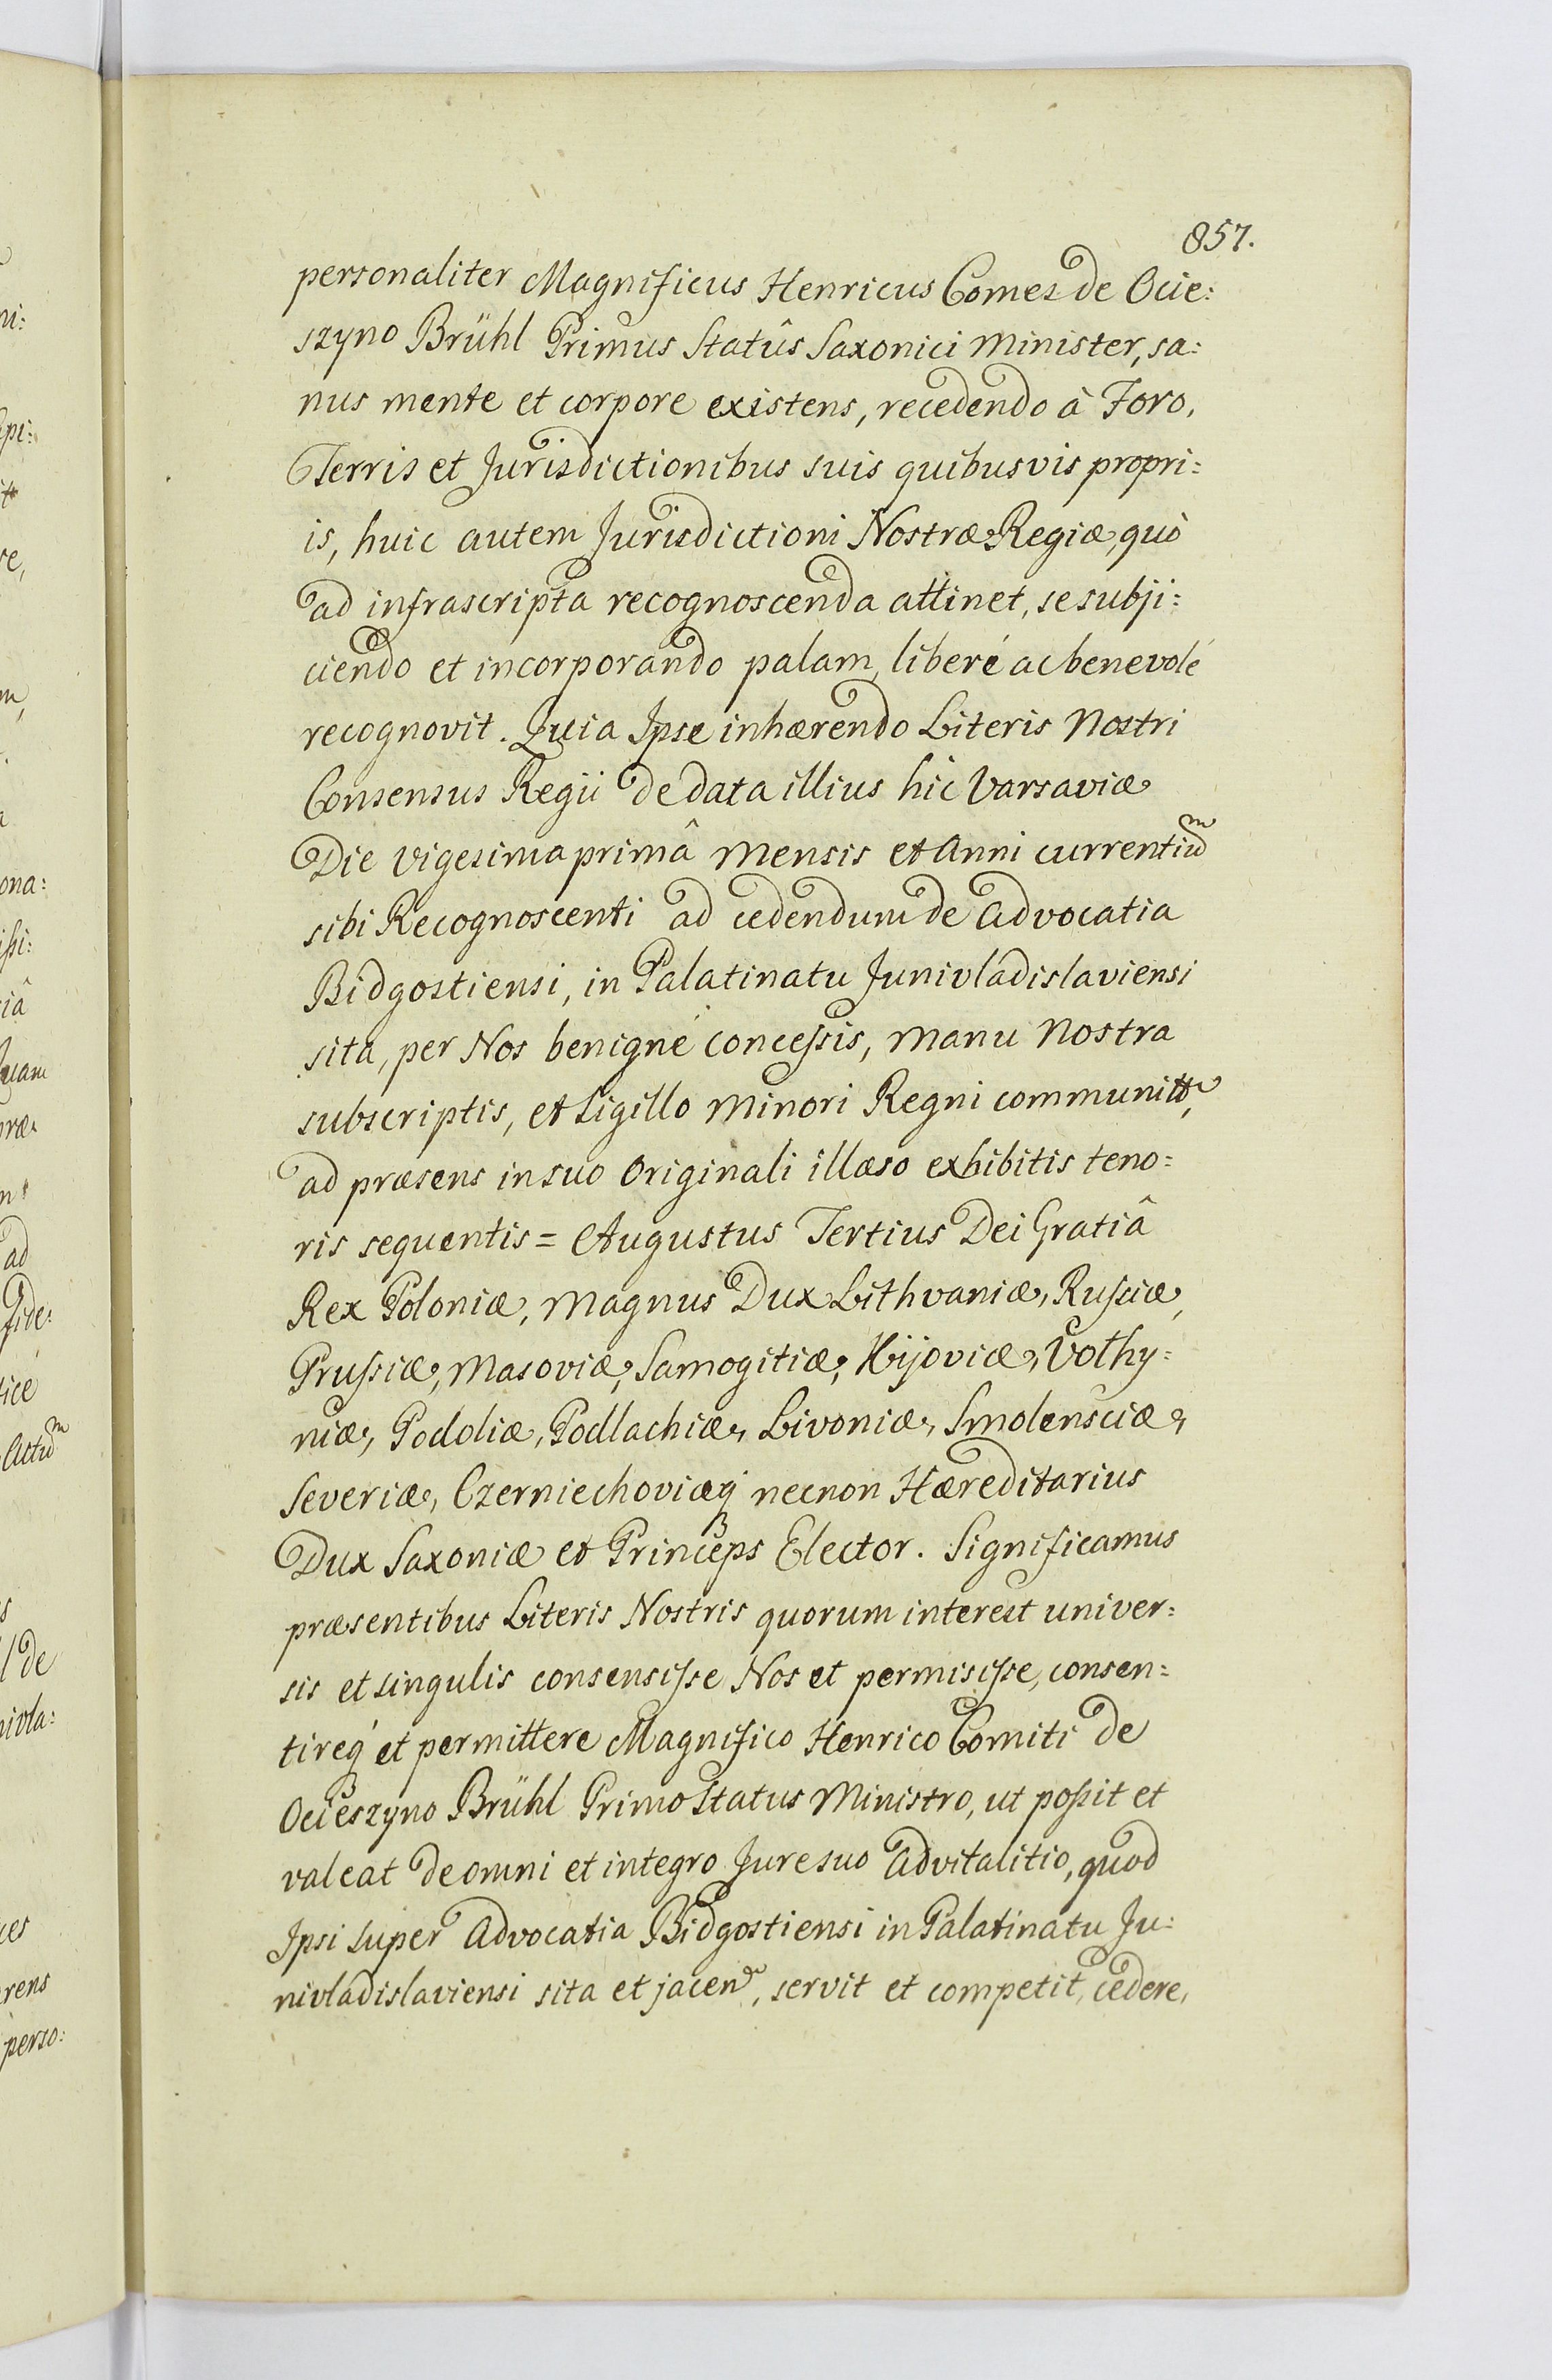 857.
personaliter Magnificus Henricus Comes de Ocie:
szyno Brühl Primus Statûs Saxonici Minister, sa:
nus mente et corpore existens, recedendo à Foro,
Terris et Jurisdictionibus suis quibusvis propri=
is, huic autem Jurisdictioni Nostræ Regiæ, quò
ad infrascripta recognoscenda attinet, se subji:
ciendo et incorporando palam, liberé ac benevolé
recognovit. Quia Ipse inhærendo Literis Nostri
Consensus Regii de data illius hic Varsaviæ
Die vigesima primâ Mensis et Anni currentiũ
sibi Recognoscenti ad cedendum de Advocatia
Bidgostiensi, in Palatinatu Junivladislaviensi
sita, per Nos benigné concessis, Manu Nostra
subscriptis, et Sigillo Minori Regni communitt,
ad præsens in suo Originali illæso exhibitis teno=
ris sequentis = Augustus Tertius Dei Gratiâ
Rex Poloniæ, Magnus Dux Lithvaniæ, Russiæ,
Prussiæ, Masoviæ, Samogitiæ, Kijoviæ, Volhy=
niæ, Podoliæ, Podlachiæ, Livoniæ, Smolensciæ,
Severiæ, Czerniechoviæq́ necnon Hæreditarius
Dux Saxoniæ et Princeps Elector. Significamus
præsentibus Literis Nostris quorum interest univer=
sis et singulis consensisse Nos et permisisse, consen=
tireq́ et permittere Magnifico Henrico Comiti de
Ocieszyno Brühl Primo Status Ministro, ut possit et
valeat de omni et integro Jure suo Advitalitio, quod
Ipsi super Advocatia Bidgostiensi in Palatinatu Ju=
nivladislaviensi sita et jacen, servit et competit, cedere,